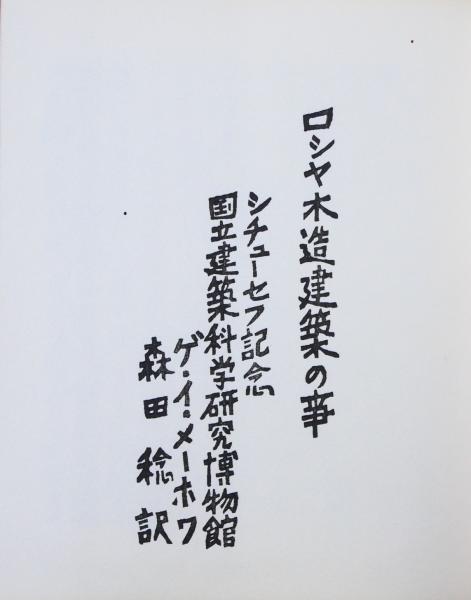 ロシヤ木造建築の事
シチューセフ記念
国立建築科学研究博物館
ゲ・イ・メーホワ
森田稔訳